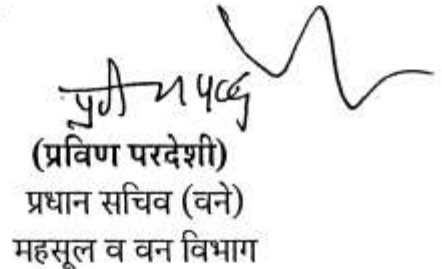 (प्रविण परदेशी)
प्रधान सचिव (वने)
महसूल व वन विभाग